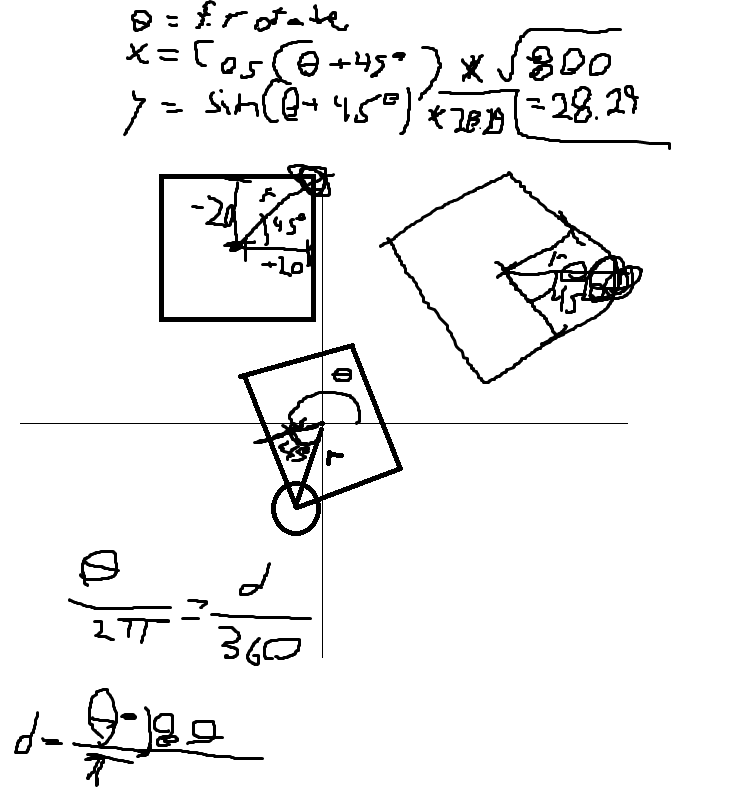 θ = £ rotate
x = cos(θ+45°) * √800
y = sin(θ+45°) * 28.29 = 28.29
-20
r
45°
+20
r
45
θ
45°
r
θ/2π = d/360
d = θ·180/π